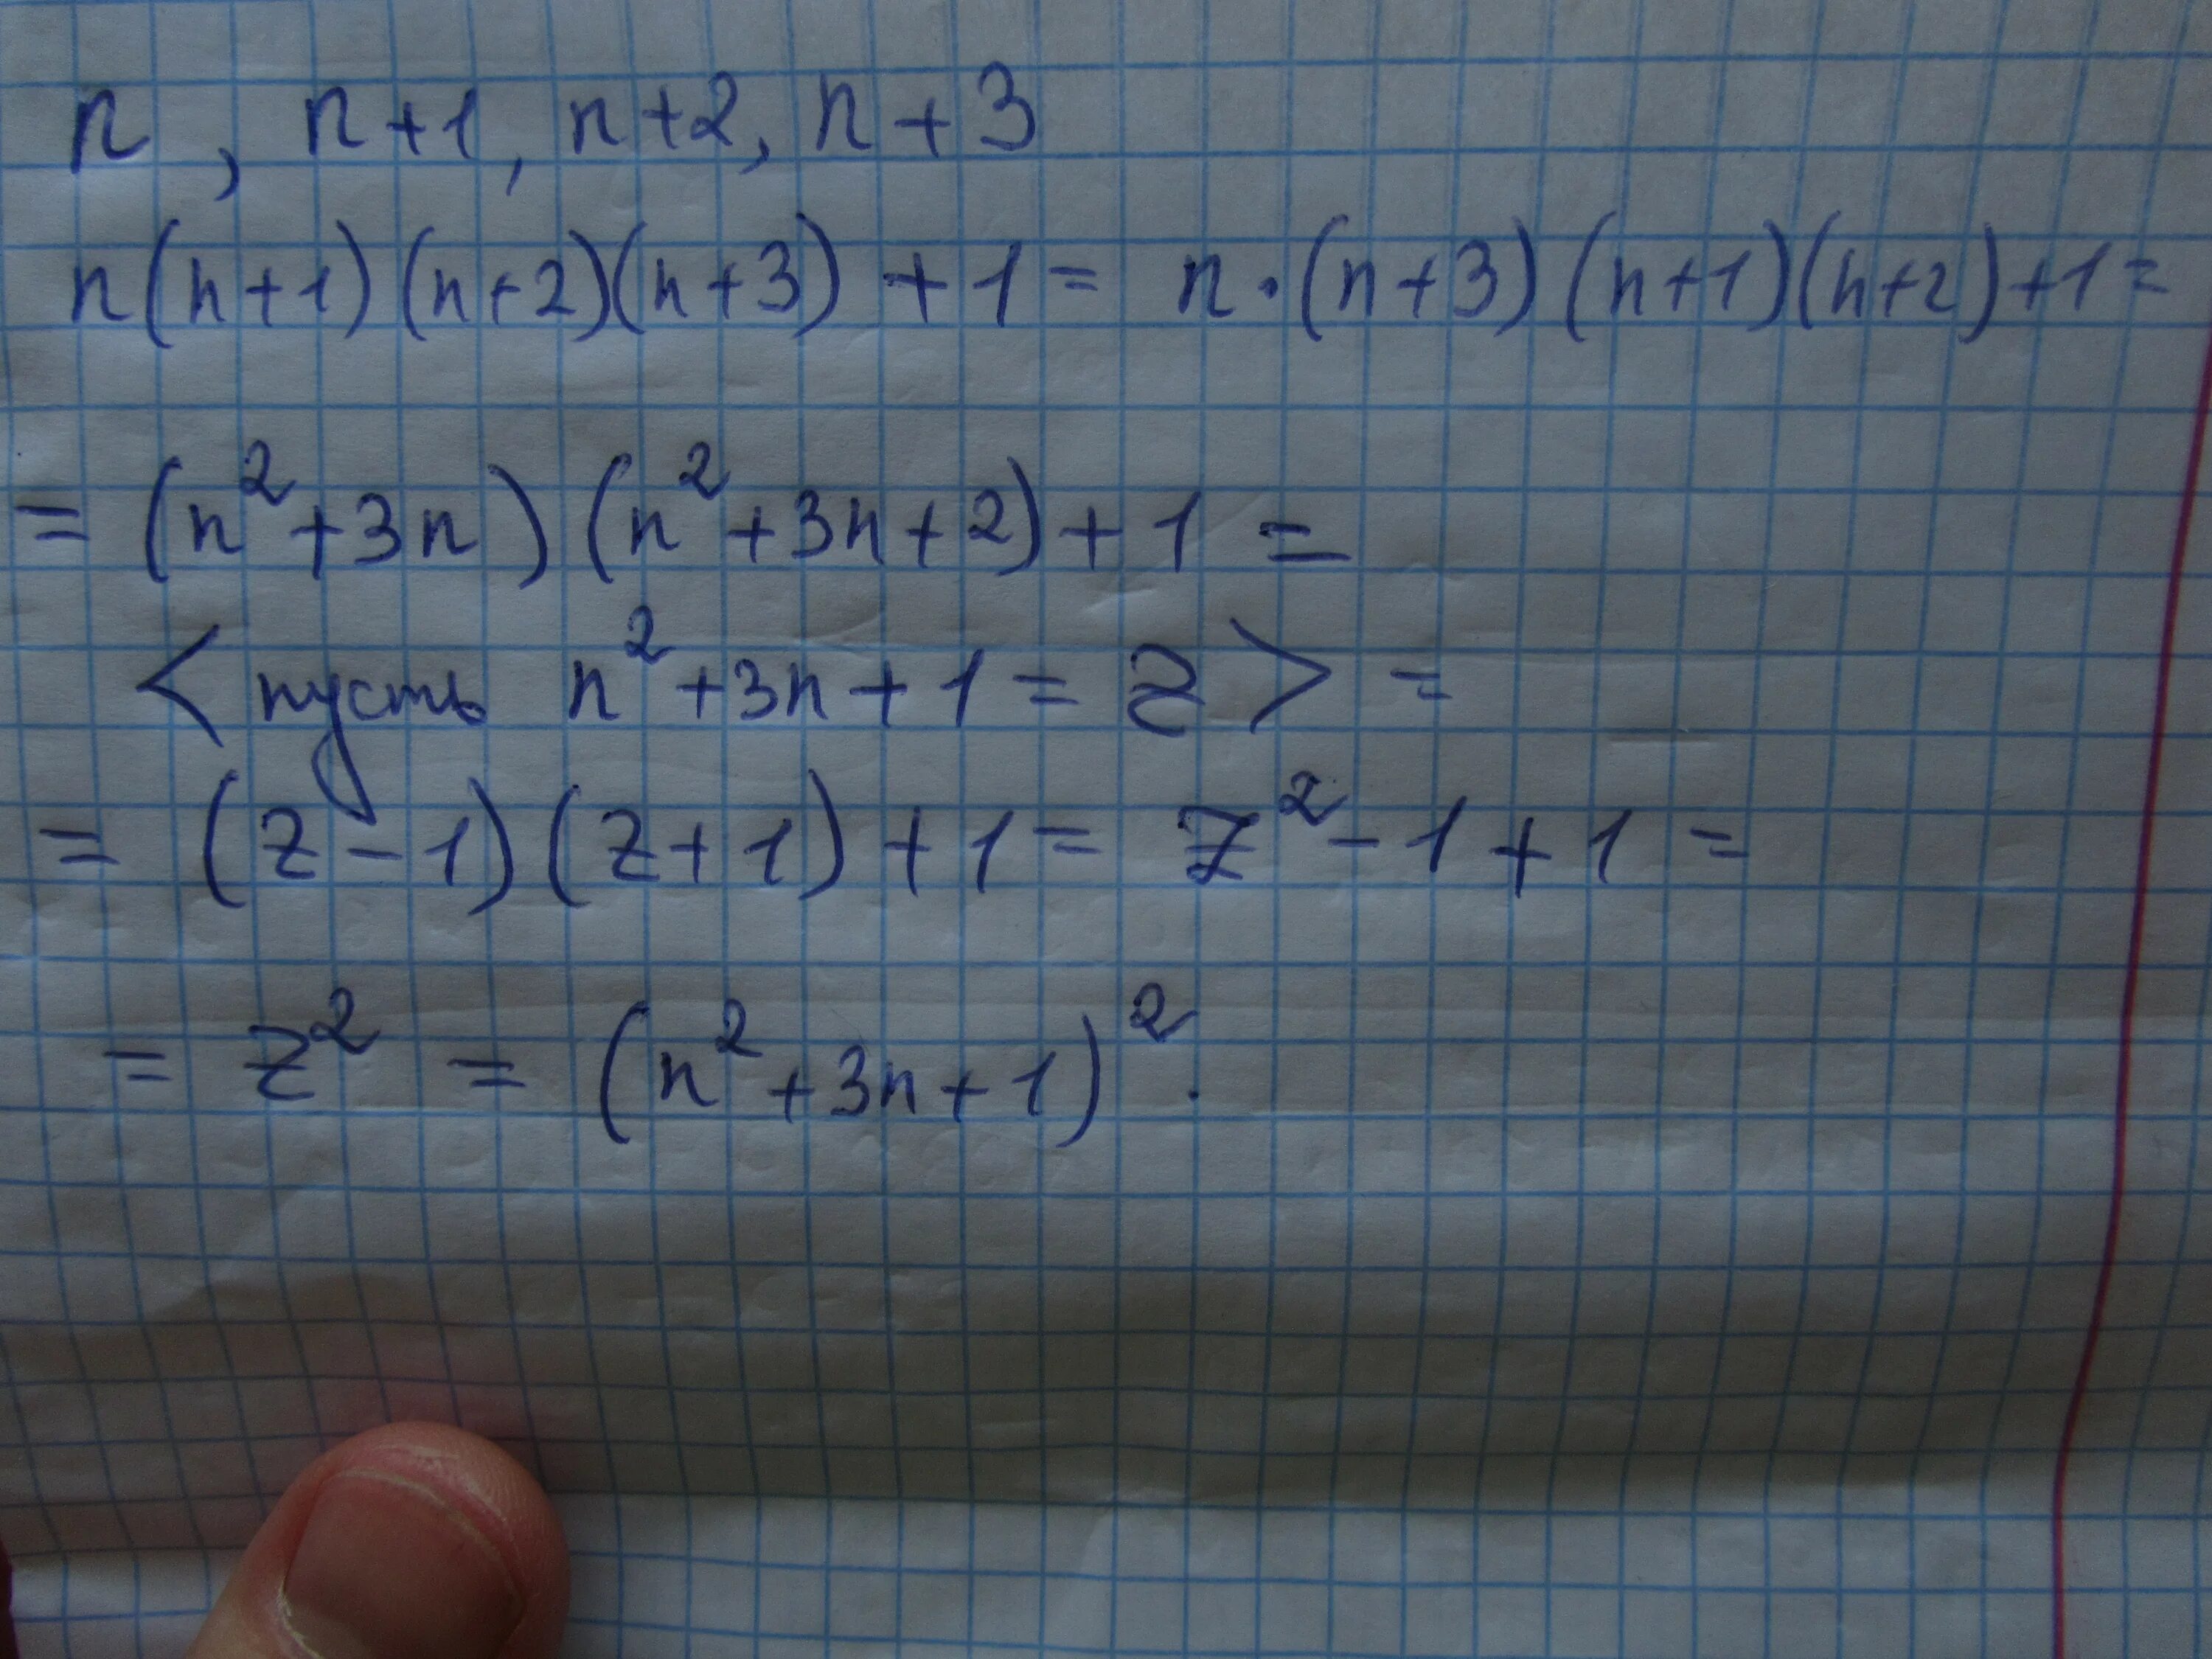 n, n+1, n+2, n+3
n(n+1)(n+2)(n+3)+1= n·(n+3)(n+1)(n+2)+1=
= (n²+3n)(n²+3n+2)+1=
<пусть n²+3n+1=z> =
= (z-1)(z+1)+1= z²-1+1=
= z² = (n²+3n+1)².